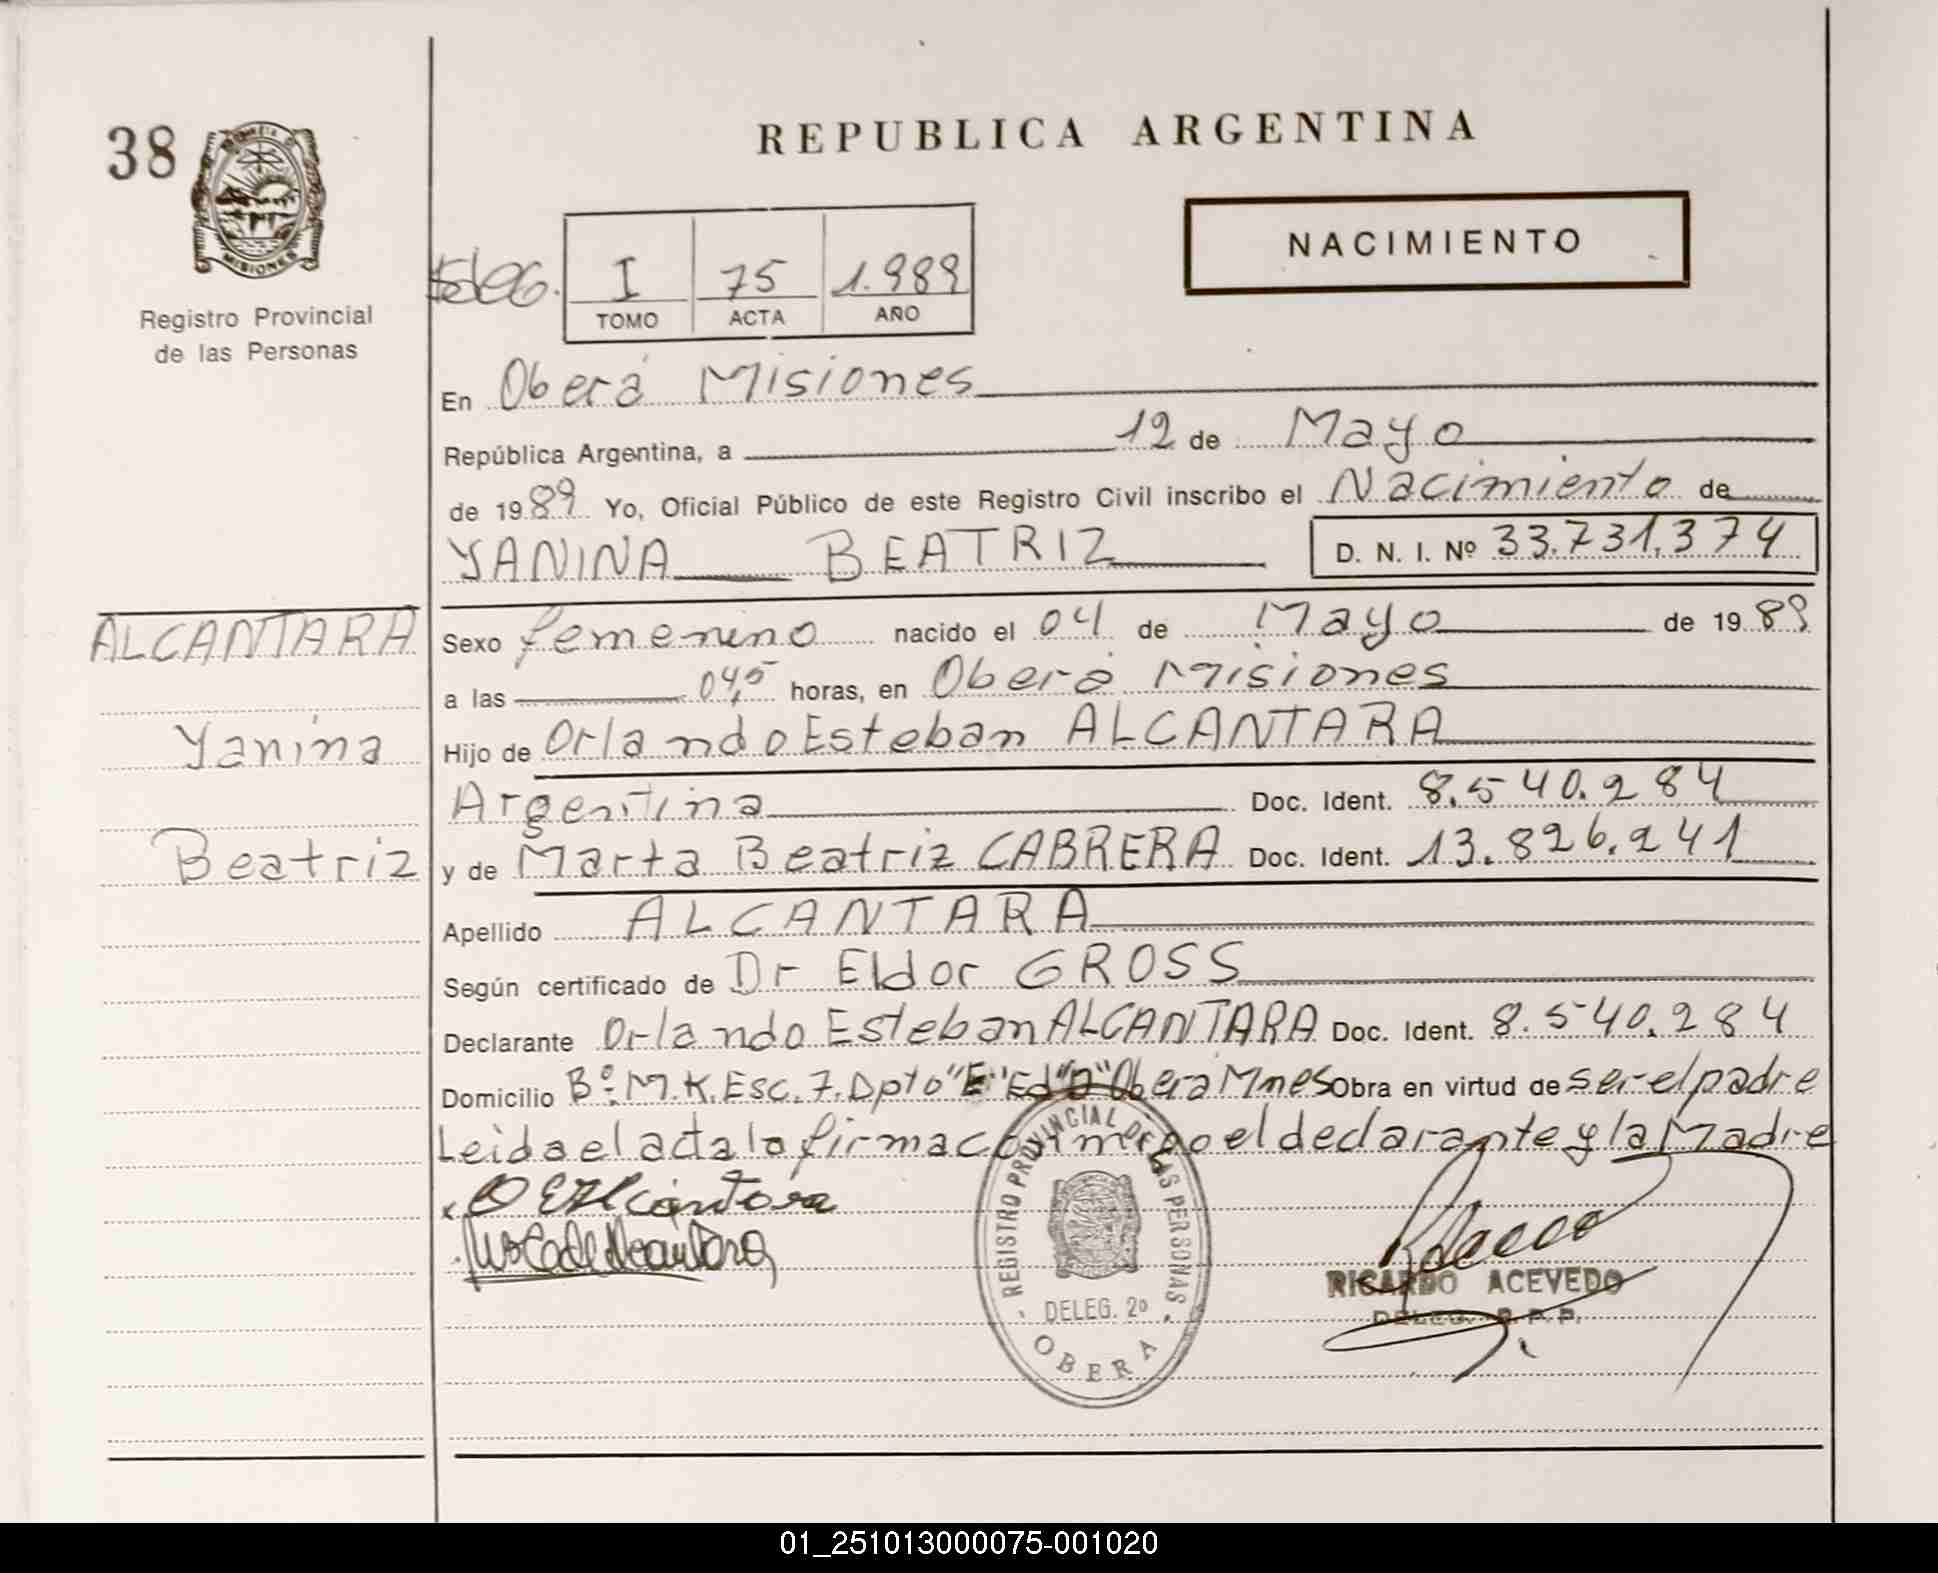 38
REPUBLICA ARGENTINA
MISIONES
NACIMIENTO
Registro Provincial
de las Personas
I 75 1.989
TOMO ACTA AÑO
En Oberá Misiones
República Argentina, a 12 de Mayo
de 1989 Yo, Oficial Público de este Registro Civil inscribo el Nacimiento de
YANINA BEATRIZ D. N. I. Nº 33.731.374
ALCANTARA
Yanina
Beatriz
Sexo femenino nacido el 04 de Mayo de 1989
a las 04,5 horas, en Oberá Misiones
Hijo de Orlando Esteban ALCANTARA
Argentina Doc. Ident. 8.540.284
y de Marta Beatriz CABRERA Doc. Ident. 13.826.241
Apellido ALCANTARA
Según certificado de Dr Eldor GROSS
Declarante Orlando Esteban ALCANTARA Doc. Ident. 8.540.284
Domicilio Bº M.K. Esc. 7. Dpto "E" Ed "D" Oberá Mnes Obra en virtud de ser el padre
Leida el acta la firma conmigo el declarante y la Madre
REGISTRO PROVINCIAL DE LAS PERSONAS
DELEG. 2º
OBERA
RICARDO ACEVEDO
DELEG. R.P.P.
01_251013000075-001020